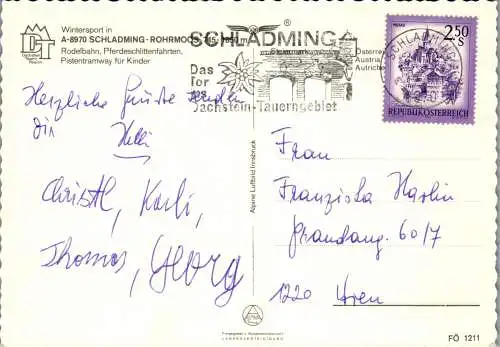 Wintersport in
A-8970 SCHLADMING - ROHRMOOS, 745-1850 m
Rodelbahn, Pferdeschlittenfahrten,
Pistentramway für Kinder
SCHLADMING
Das
Tor
des
Dachstein-Tauerngebiet
Österreich
Austria
Autriche
SCHLADMING
2.50 S
REPUBLIK ÖSTERREICH
Herzliche Grüße senden
Dir Helli
Christl, Karli,
Thomas, Georg
Alpine Luftbild Innsbruck
Frau
Franziska
60/7
1220 Wien
LANDESVERTEIDIGUNG
FÖ 1211